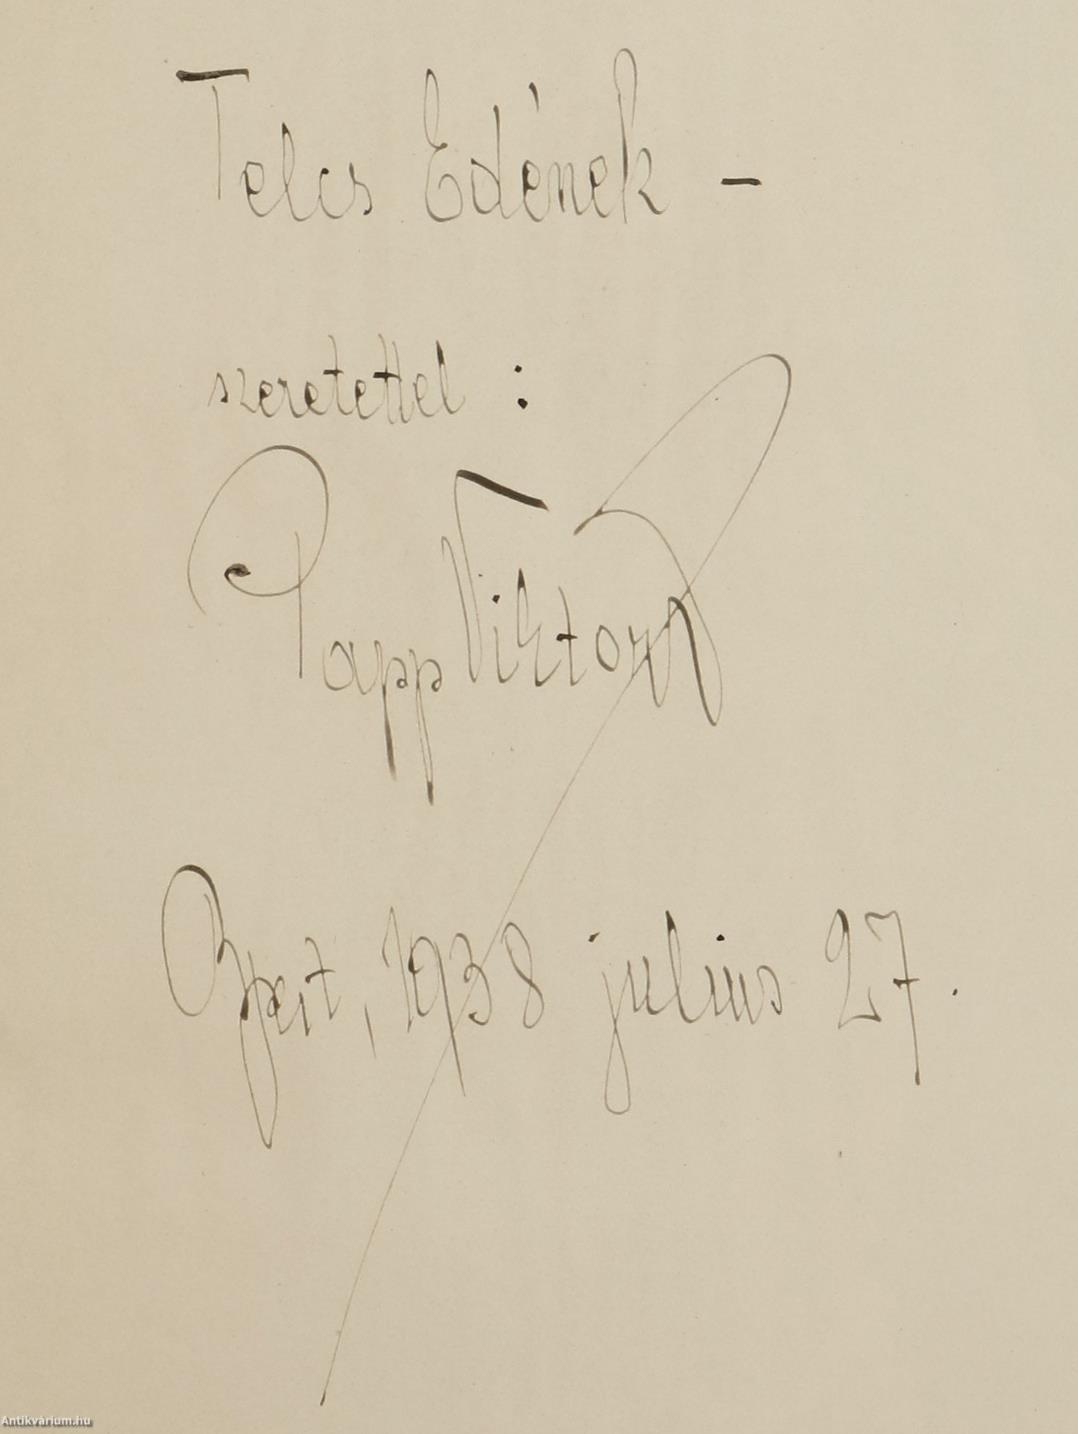 Telcs Edének –
szeretettel :
Papp Viktor
Bpest, 1938 július 27.
Antikvárium.hu